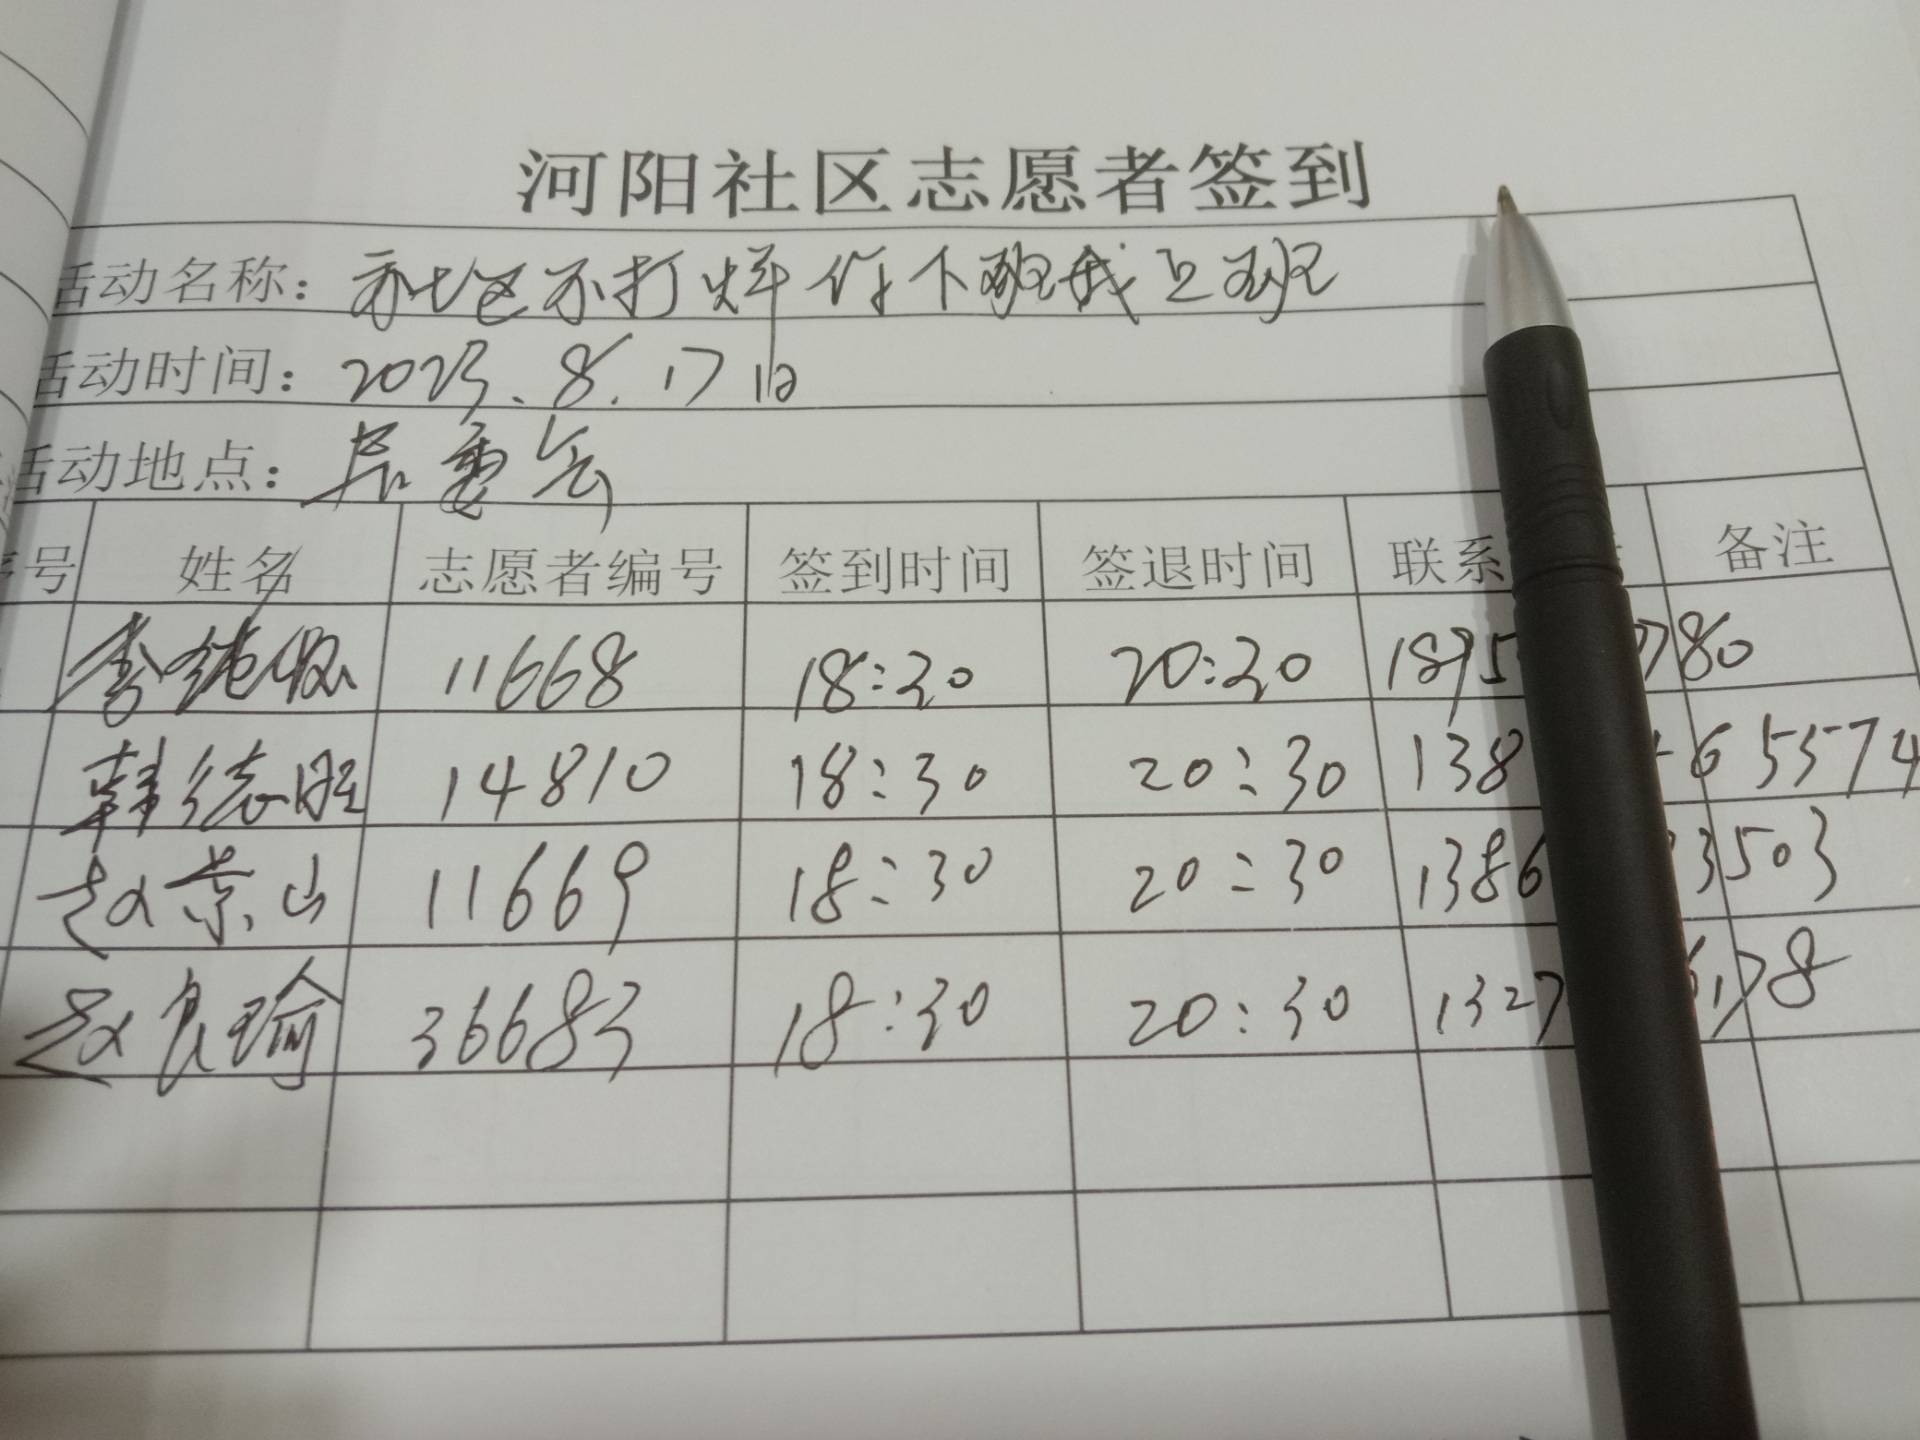 河阳社区志愿者签到
活动名称：社区不打烊 你下班我上班
活动时间：2023.8.17日
活动地点：居委会
号 姓名 志愿者编号 签到时间 签退时间 联系 备注
李 11668 18:30 20:30 1895 780
韩德旺 14810 18:30 20:30 138 65574
赵景山 11669 18:30 20:30 1386 3503
赵良瑜 36683 18:30 20:30 1327 178